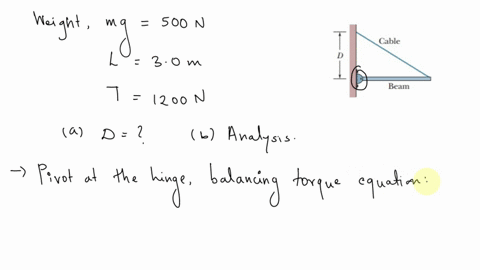 Weight, mg = 500 N
L = 3.0 m
T = 1200 N
(a) D = ? (b) Analysis.
→ Pivot at the hinge, balancing torque equation:
Cable
D
Beam